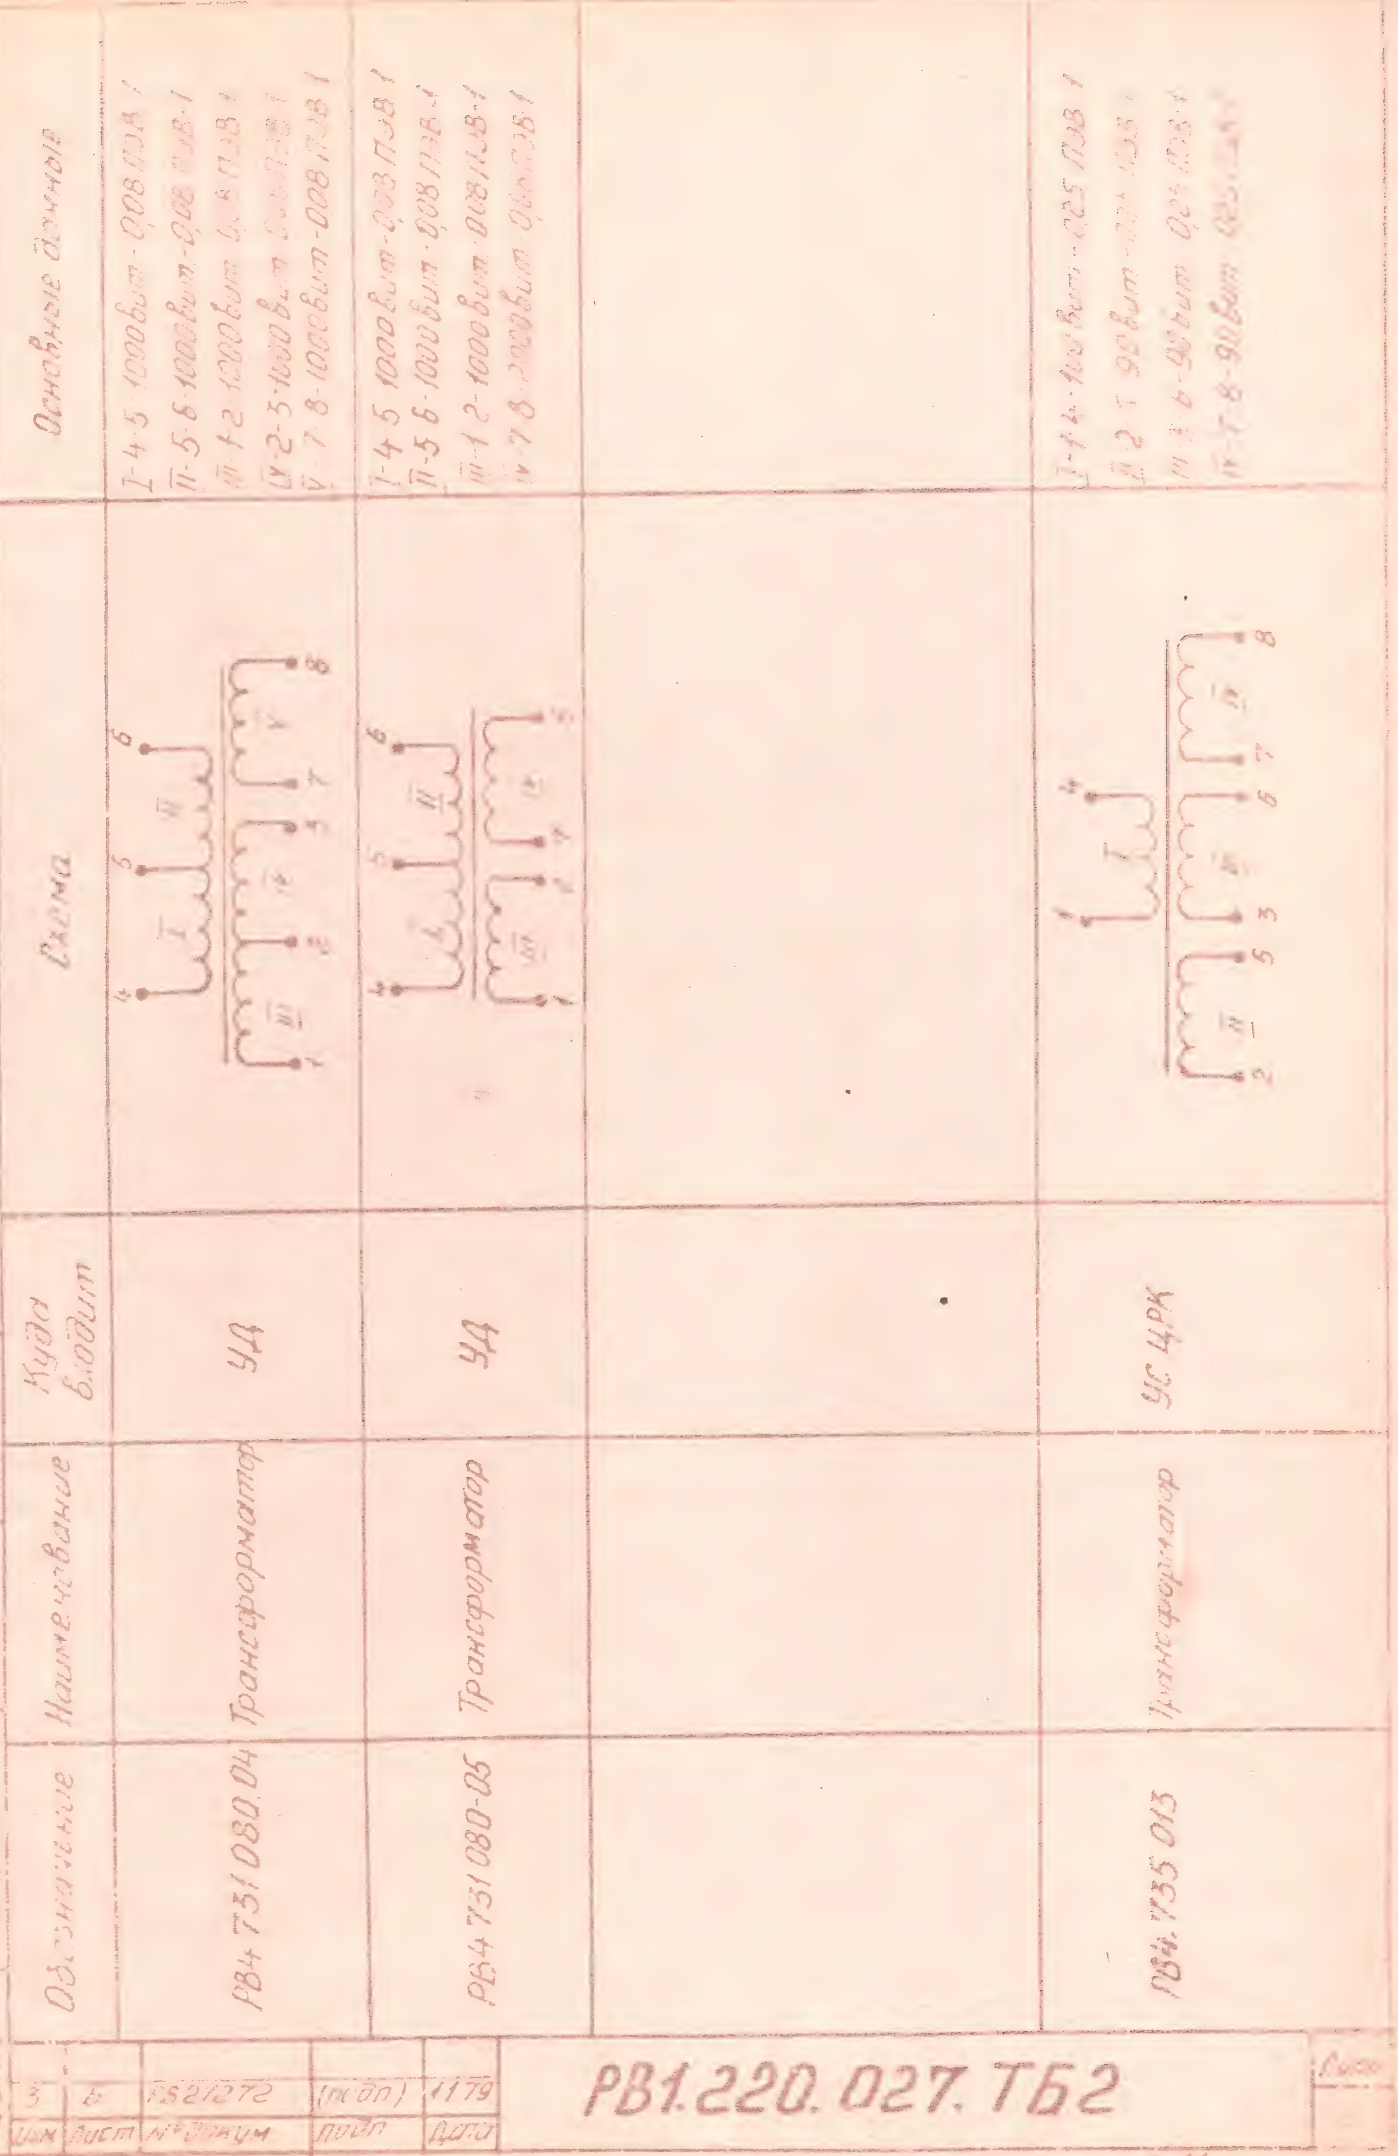 Обозначение
Наименование
Куда
входит
Схема
Основные данные
РВ4 731 080.04
Трансформатор
УД
4 5 6
I II
III IV V
1 2 3 7 8
I-4-5-1000вит-0,08 ПЭВ-1
II-5-6-1000вит-0,08 ПЭВ-1
III-1-2-1000вит ПЭВ-1
IV-2-3-1000вит ПЭВ-1
V-7-8-1000вит-0,08 ПЭВ 1
РВ4 731 080-05
Трансформатор
УД
4 5 6
I II
III IV
1 2 7 8
I-4 5 1000вит-0,08 ПЭВ 1
II-5 6-1000вит-0,08 ПЭВ-1
III-1 2-1000вит-0,08 ПЭВ-1
IV-7 8-2000вит ПЭВ-1
РВ4.735 013
Трансформатор
УС ЦРК
1 4
I
II III IV
2 5 3 6 7 8
I-1 4-100вит-0,25 ПЭВ 1
II-2 5 90вит ПЭВ 1
III 3 6-90вит 0,25 ПЭВ-1
IV-7-8-90вит 0,25
3 6 РВ21272 (подп) 1179
Изм Лист № докум подп Дата
РВ1.220.027.ТБ2
Лист